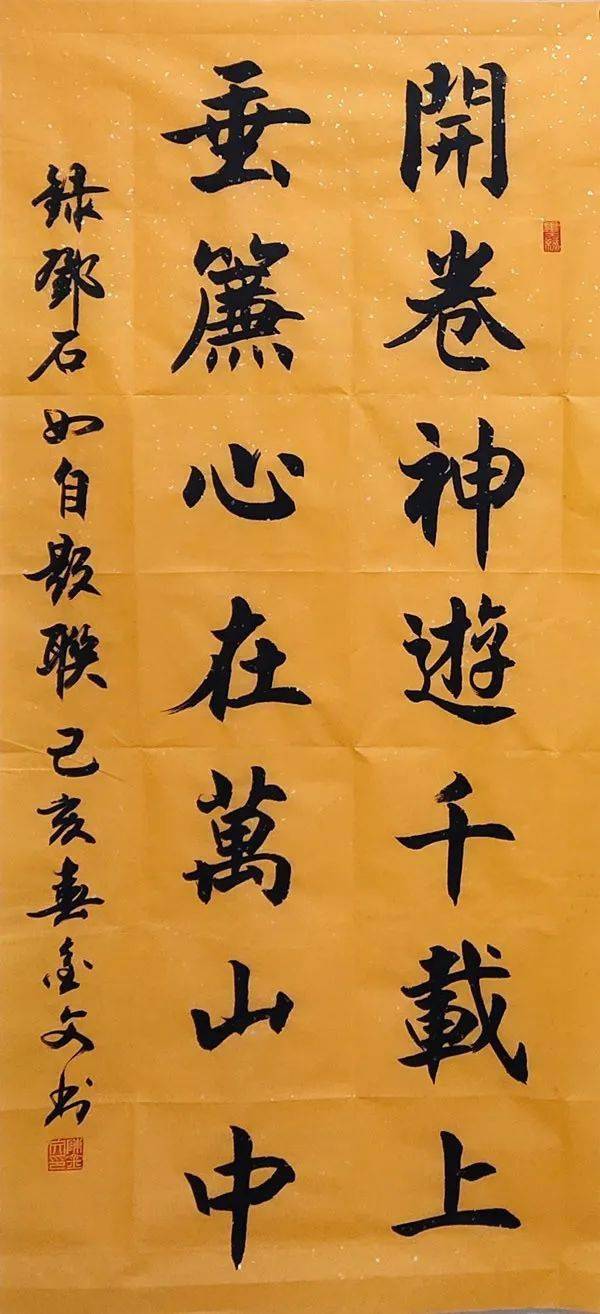 開卷神遊千載上
垂簾心在萬山中
録鄧石如自題聯己亥春金文书